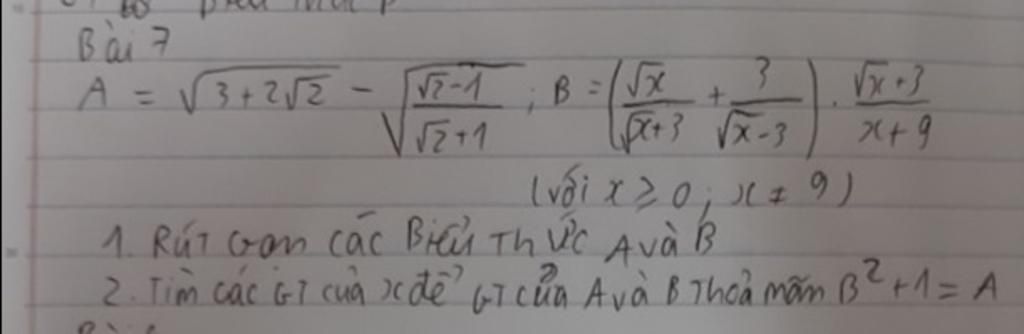 Bài 7
A = √(3+2√2) - √((√2-1)/(√2+1)) ; B = (√x/(√x+3) + 3/(√x-3)) . (√x+3)/(x+9)
(với x ≥ 0 ; x ≠ 9)
1. Rút Gọn các Biểu Thức A và B
2. Tìm các GT của x để GT của A và B Thoả mãn B² + 1 = A